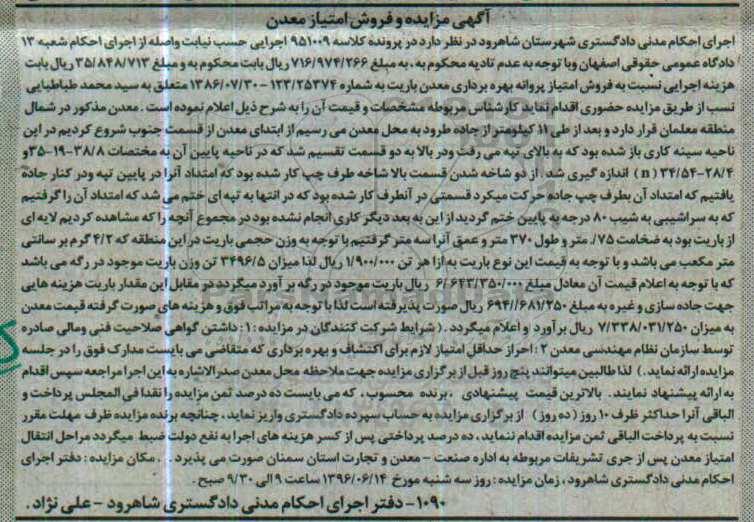 آگهی مزایده و فروش امتیاز معدن
اجرای احکام مدنی دادگستری شهرستان شاهرود در نظر دارد در پرونده کلاسه ۹۵۱۰۰۹ اجرایی حسب نیابت واصله از اجرای احکام شعبه ۱۳
دادگاه عمومی حقوقی اصفهان وبا توجه به عدم تادیه محکوم به ، به مبلغ ۷۱۶/۹۷۴/۲۶۶ ریال بابت محکوم به و مبلغ ۳۵/۸۴۸/۷۱۳ ریال بابت
هزینه اجرایی نسبت به فروش امتیاز پروانه بهره برداری معدن باریت به شماره ۱۲۳/۲۵۳۷۴-۱۳۸۶/۰۷/۳۰ متعلق به سید محمد طباطبایی
نسب از طریق مزایده حضوری اقدام نماید کارشناس مربوطه مشخصات و قیمت آن را به شرح ذیل اعلام نموده است . معدن مذکور در شمال
منطقه معلمان قرار دارد و بعد از طی ۱۱ کیلومتر از جاده طرود به محل معدن می رسیم از ابتدای معدن از قسمت جنوب شروع کردیم در این
ناحیه سینه کاری باز شده بود که به بالای تپه می رفت ودر بالا به دو قسمت تقسیم شد که در ناحیه پایین آن به مختصات ۳۸/۸-۱۹-۳۵و
۲۸/۴-۳۴/۵۴ (n) اندازه گیری شد . از دو شاخه شدن قسمت بالا شاخه طرف چپ کار شده بود که امتداد آنرا در پایین تپه ودر کنار جاده
یافتیم که امتداد آن بطرف چپ جاده حرکت میکرد قسمتی در آنطرف کار شده بود که در انتها به تپه ای ختم می شد که امتداد آن را گرفتیم
که به سراشیبی به شیب ۸۰ درجه به پایین ختم گردید از این به بعد دیگر کاری انجام نشده بود در مجموع آنچه را که مشاهده کردیم لایه ای
از باریت بود به ضخامت ۷۵/. متر و طول ۳۷۰ متر و عمق آنرا سه متر گرفتیم با توجه به وزن حجمی باریت در این منطقه که ۴/۲ گرم بر سانتی
متر مکعب می باشد و با توجه به قیمت این نوع باریت به ازا هر تن ۱/۹۰۰/۰۰۰ ریال لذا میزان ۳۴۹۶/۵ تن وزن باریت موجود در رگه می باشد
که با توجه به اعلام قیمت آن معادل مبلغ ۶/۶۴۳/۳۵۰/۰۰۰ ریال باریت موجود در رگه بر آورد میگردد در مقابل این مقدار باریت هزینه هایی
جهت جاده سازی و غیره به مبلغ ۶۹۴//۶۸۱/۲۵۰ ریال صورت پذیرفته است لذا با توجه به مراتب فوق و هزینه های صورت گرفته قیمت معدن
به میزان ۷/۳۳۸/۰۳۱/۲۵۰ ریال برآورد و اعلام میگردد . ( شرایط شرکت کنندگان در مزایده : ۱: داشتن گواهی صلاحیت فنی ومالی صادره
توسط سازمان نظام مهندسی معدن ۲ : احراز حداقل امتیاز لازم برای اکتشاف و بهره برداری که متقاضی می بایست مدارک فوق را در جلسه
مزایده ارائه نماید . ) لذا طالبین میتوانند پنج روز قبل از برگزاری مزایده جهت ملاحظه محل معدن صدرالاشاره به این اجرا مراجعه سپس اقدام
به ارائه پیشنهاد نمایند . بالاترین قیمت پیشنهادی ، برنده محسوب ، که می بایست ده درصد ثمن مزایده را نقدا فی المجلس پرداخت و
الباقی آنرا حداکثر ظرف ۱۰ روز ( ده روز ) از برگزاری مزایده به حساب سپرده دادگستری واریز نماید ، چنانچه برنده مزایده ظرف مهلت مقرر
نسبت به پرداخت الباقی ثمن مزایده اقدام ننماید ، ده درصد پرداختی پس از کسر هزینه های اجرا به نفع دولت ضبط میگردد مراحل انتقال
امتیاز معدن پس از جری تشریفات مربوطه به اداره صنعت – معدن و تجارت استان سمنان صورت می پذیرد . . مکان مزایده : دفتر اجرای
احکام مدنی دادگستری شاهرود ، زمان مزایده : روز سه شنبه مورخ ۱۳۹۶/۰۶/۱۴ ساعت ۹ الی ۹/۳۰ صبح .
۱۰۹۰- دفتر اجرای احکام مدنی دادگستری شاهرود - علی نژاد .